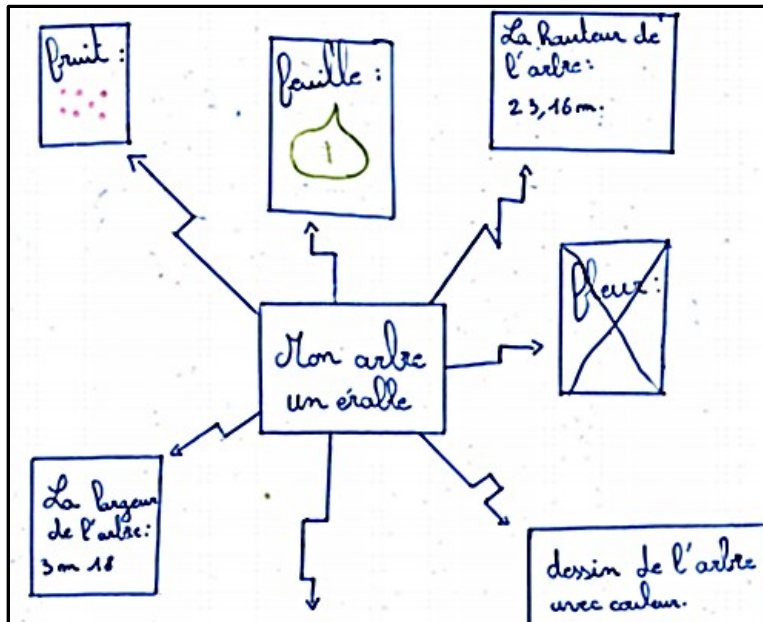 fruit :
feuille :
La hauteur de
l'arbre:
23,16m.
fleur :
Mon arbre
un érable
La largeur
de l'arbre:
3m 18
dessin de l'arbre
avec couleur.